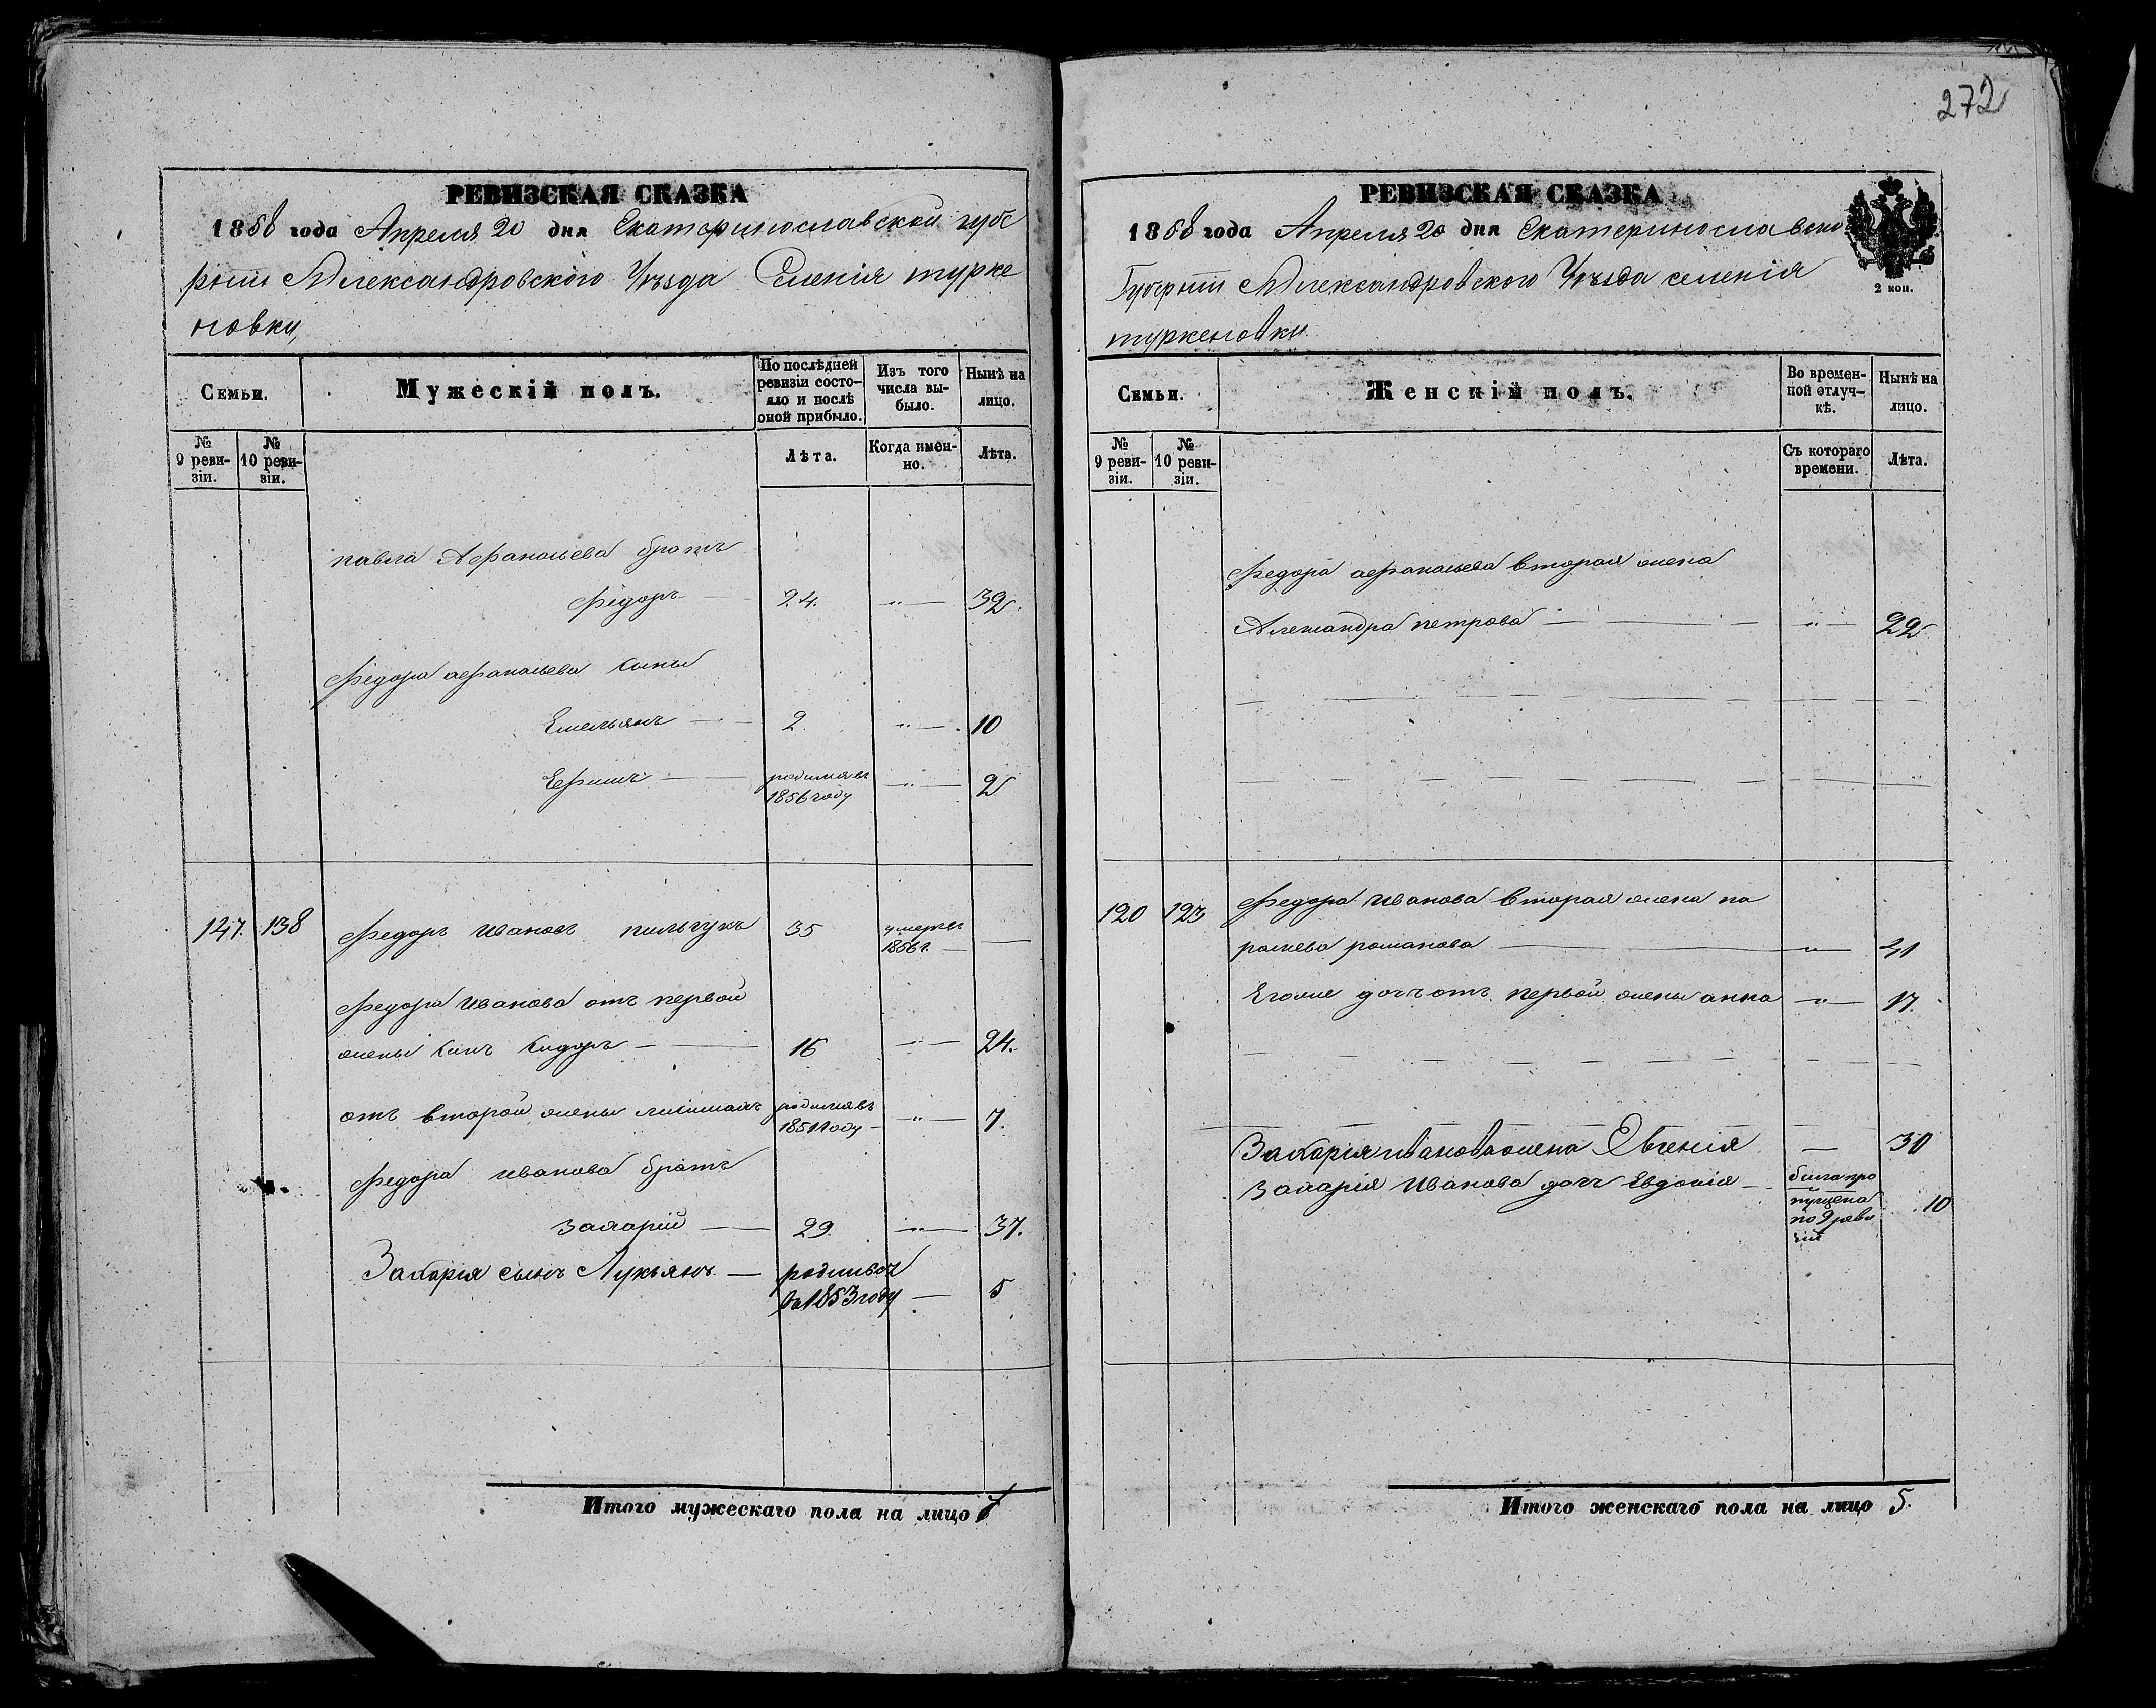 272
РЕВИЗСКАЯ СКАЗКА
1858 года Апреля 20 дня Екатеринославской губе
рніи Александровского Уѣзда Селенія турке
новки,
Семьи.
Мужескій полъ.
По послѣдней ревизіи состояло и послѣ оной прибыло.
Изъ того числа выбыло.
Нынѣ на лицо.
№ 9 ревизіи.
№ 10 ревизіи.
Лѣта.
Когда именно.
Лѣта.
павла Афанасьева братъ
Федоръ — 24. " — 32.
Федора афанасьева сыны
Емельянъ — 2. " — 10
Ефимъ — родился въ 1856 году " — 2
147. 138 Федоръ Ивановъ пильчукъ 35 умеръ въ 1856 г. —
Федора Иванова отъ первой
жены сынъ Сидоръ — 16 " — 24.
отъ второй жены родился въ 1851 году " — 7.
Федора иванова братъ
Захарій — 29. " — 37.
Захарія сынъ Лукьянъ — родился въ 1853 году — 5
Итого мужескаго пола на лицо 7
РЕВИЗСКАЯ СКАЗКА
1858 года Апреля 20 дня Екатеринославско
Губерніи Александровского Уѣзда селенія
туркеновки
2 коп.
Семьи.
Женскій полъ.
Во временной отлучкѣ.
Нынѣ на лицо.
№ 9 ревизіи.
№ 10 ревизіи.
Съ котораго времени.
Лѣта.
Федора афанасьева вторая жена
Александра петрова — " — 22.
120 123 Федора Иванова вторая жена па
раскева романова — " — 41
Егоже дочь отъ первой жены анна — " — 17.
Захарія Иванова жена Евгенія — 30
Захарія Иванова дочь Евдокія — была про
пущена
по 9 реви
зіи 10
Итого женскаго пола на лицо 5.